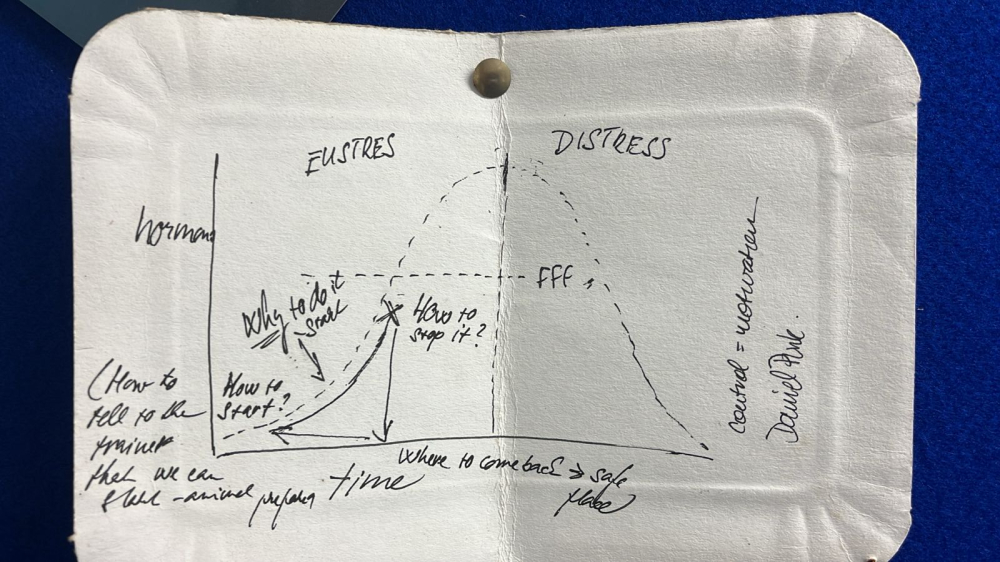 EUSTRES
DISTRESS
hormons
FFF
Why to do it
start
How to
stop it?
How to
start?
(How to
tell to the
trainer
that we can
start - animal
time
Where to come back → safe
place
control = motivation
Daniel Pink.